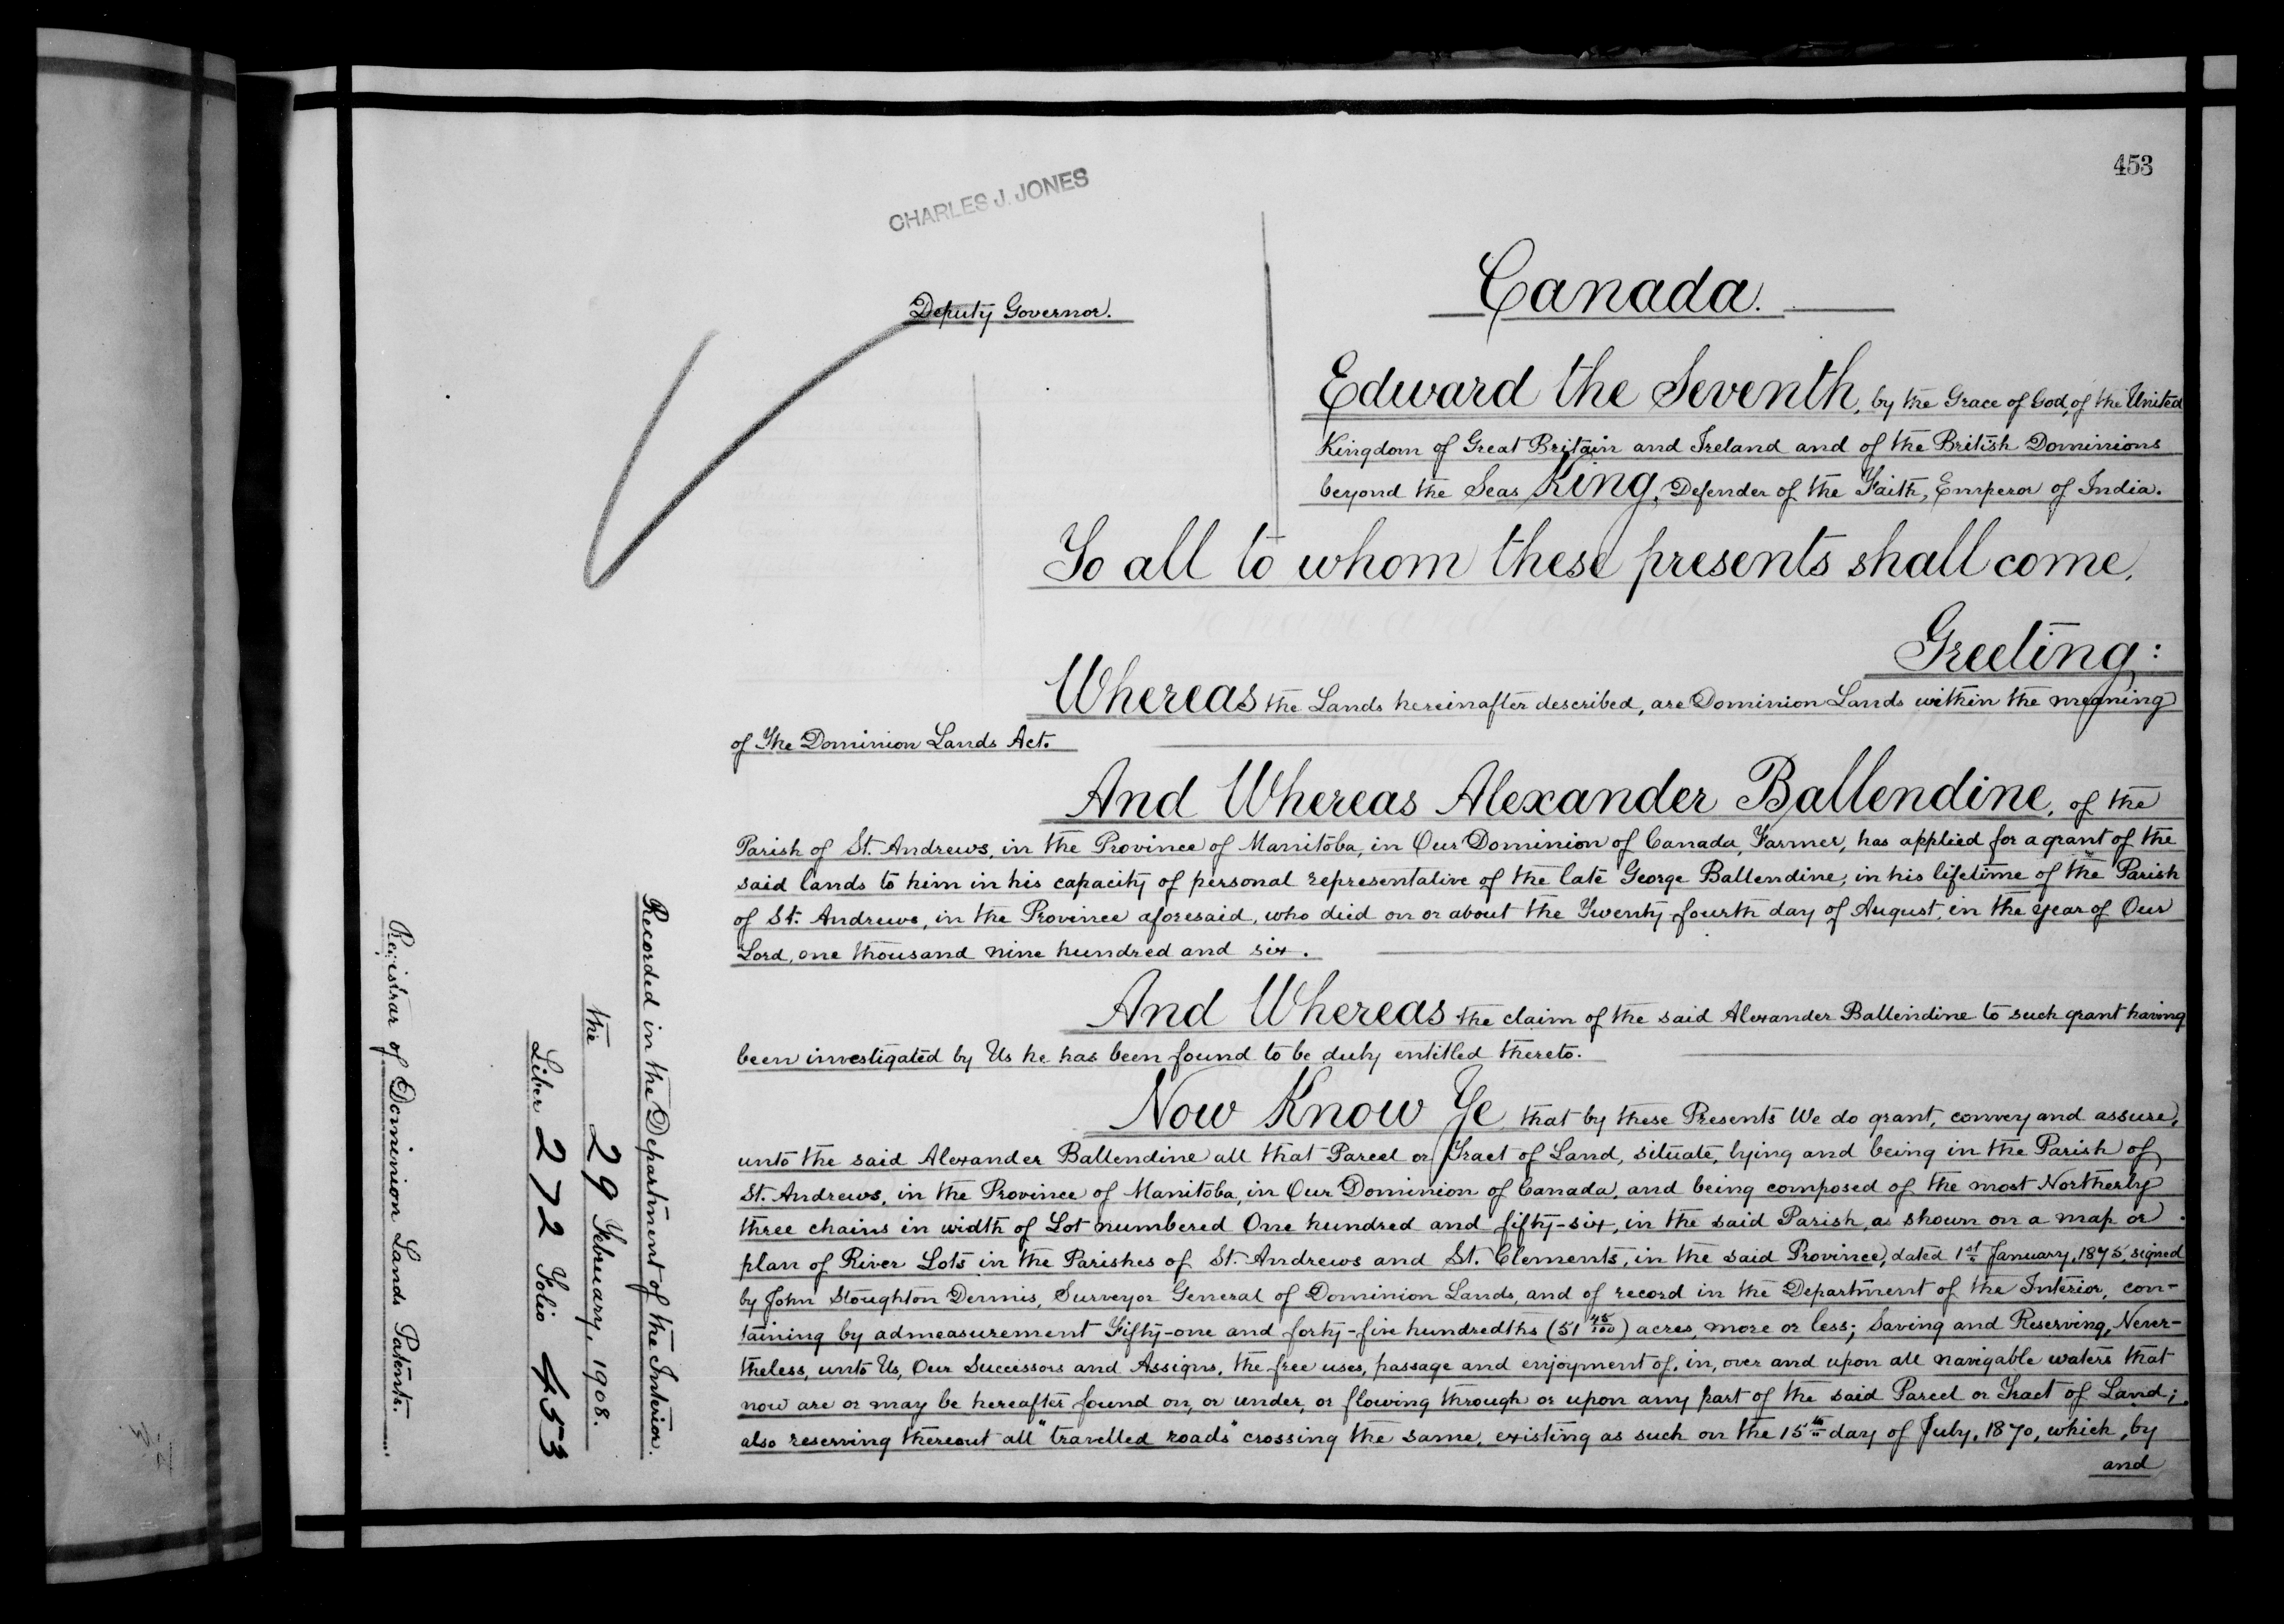 453
CHARLES J. JONES
Deputy Governor.
Canada.
Edward the Seventh, by the Grace of God, of the United
Kingdom of Great Britain and Ireland and of the British Dominions
beyond the Seas King, Defender of the Faith, Emperor of India.
To all to whom these presents shall come,
Greeting:
Whereas the Lands hereinafter described, are Dominion Lands within the meaning
of The Dominion Lands Act.
And Whereas Alexander Ballendine, of the
Parish of St. Andrews, in the Province of Manitoba, in Our Dominion of Canada, Farmer, has applied for a grant of the
said lands to him in his capacity of personal representative of the late George Ballendine, in his lifetime of the Parish
of St. Andrews, in the Province aforesaid, who died on or about the Twenty-fourth day of August, in the year of Our
Lord, one thousand nine hundred and six.
And Whereas the claim of the said Alexander Ballendine to such grant having
been investigated by Us he has been found to be duly entitled thereto.
Now Know Ye that by these Presents We do grant, convey and assure,
unto the said Alexander Ballendine all that Parcel or Tract of Land, situate, lying and being in the Parish of
St. Andrews, in the Province of Manitoba, in Our Dominion of Canada, and being composed of the most Northerly
three chains in width of Lot numbered One hundred and fifty-six, in the said Parish, as shown on a map or
plan of River Lots in the Parishes of St. Andrews and St. Clements, in the said Province, dated 1st January, 1875, signed
by John Stoughton Dennis, Surveyor General of Dominion Lands, and of record in the Department of the Interior, con-
taining by admeasurement Fifty-one and forty-five hundredths (51 45/100) acres, more or less; Saving and Reserving, Never-
theless, unto Us, Our Successors and Assigns, the free uses, passage and enjoyment of, in, over and upon all navigable waters that
now are or may be hereafter found on, or under, or flowing through or upon any part of the said Parcel or Tract of Land;
also reserving thereout all "travelled roads" crossing the same, existing as such on the 15th day of July, 1870, which, by
and
Recorded in the Department of the Interior.
the 29 February, 1908.
Liber 272 Folio 453
Registrar of Dominion Lands Patents.